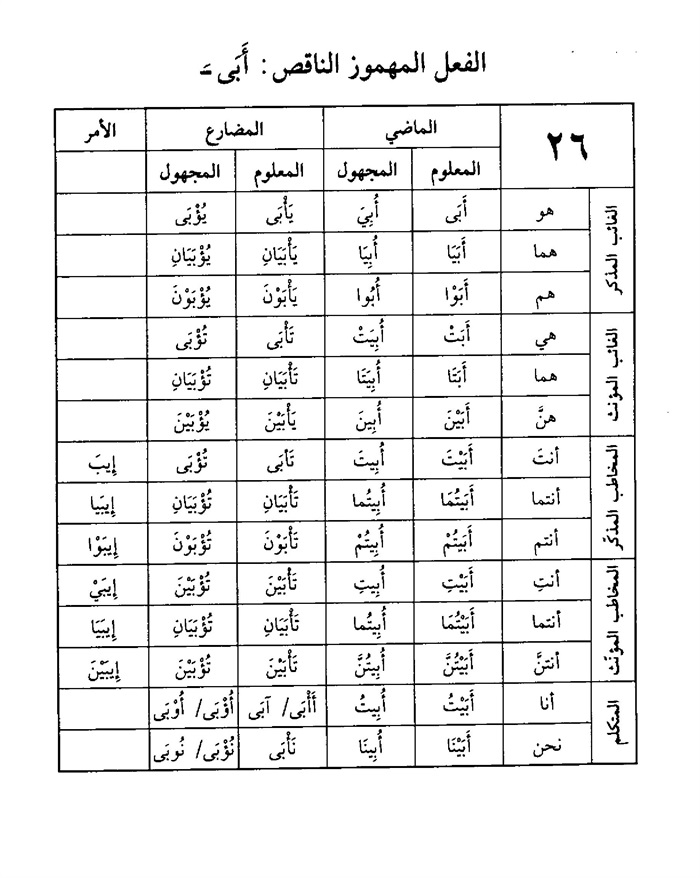 الفعل المهموز الناقص : أَبَى ـَ
٢٦ الماضي المضارع الأمر
المعلوم المجهول المعلوم المجهول
الغائب المذكر
هو أَبَى أُبِيَ يَأْبَى يُؤْبَى
هما أَبَيَا أُبِيَا يَأْبَيَانِ يُؤْبَيَانِ
هم أَبَوْا أُبُوا يَأْبَوْنَ يُؤْبَوْنَ
الغائب المؤنث
هي أَبَتْ أُبِيَتْ تَأْبَى تُؤْبَى
هما أَبَتَا أُبِيَتَا تَأْبَيَانِ تُؤْبَيَانِ
هنَّ أَبَيْنَ أُبِينَ يَأْبَيْنَ يُؤْبَيْنَ
المخاطب المذكّر
أنتَ أَبَيْتَ أُبِيتَ تَأبَى تُؤْبَى إِيبَ
أنتما أَبَيتُمَا أُبِيتُما تَأْبَيَانِ تُؤْبَيَانِ إِيبَيا
أنتم أَبَيتُمْ أُبِيتُمْ تَأْبَوْنَ تُؤْبَوْنَ إِيبَوْا
المخاطب المؤنّث
أنتِ أَبَيْتِ أُبِيتِ تَأْبَيْنَ تُؤْبَيْنَ إِيبَيْ
أنتما أَبَيْتُمَا أُبِيتُما تَأْبَيَانِ تُؤْبَيَانِ إِيبَيَا
أنتنَّ أَبَيْتُنَّ أُبِيتُنَّ تَأْبَيْنَ تُؤْبَيْنَ إِيبَيْنَ
المتكلم
أنا أَبَيْتُ أُبِيتُ أَأْبَى/ آبَى أُؤْبَى/ أُوْبَى
نحن أَبَيْنَا أُبِينَا نَأْبَى نُؤْبَى/ نُوبَى